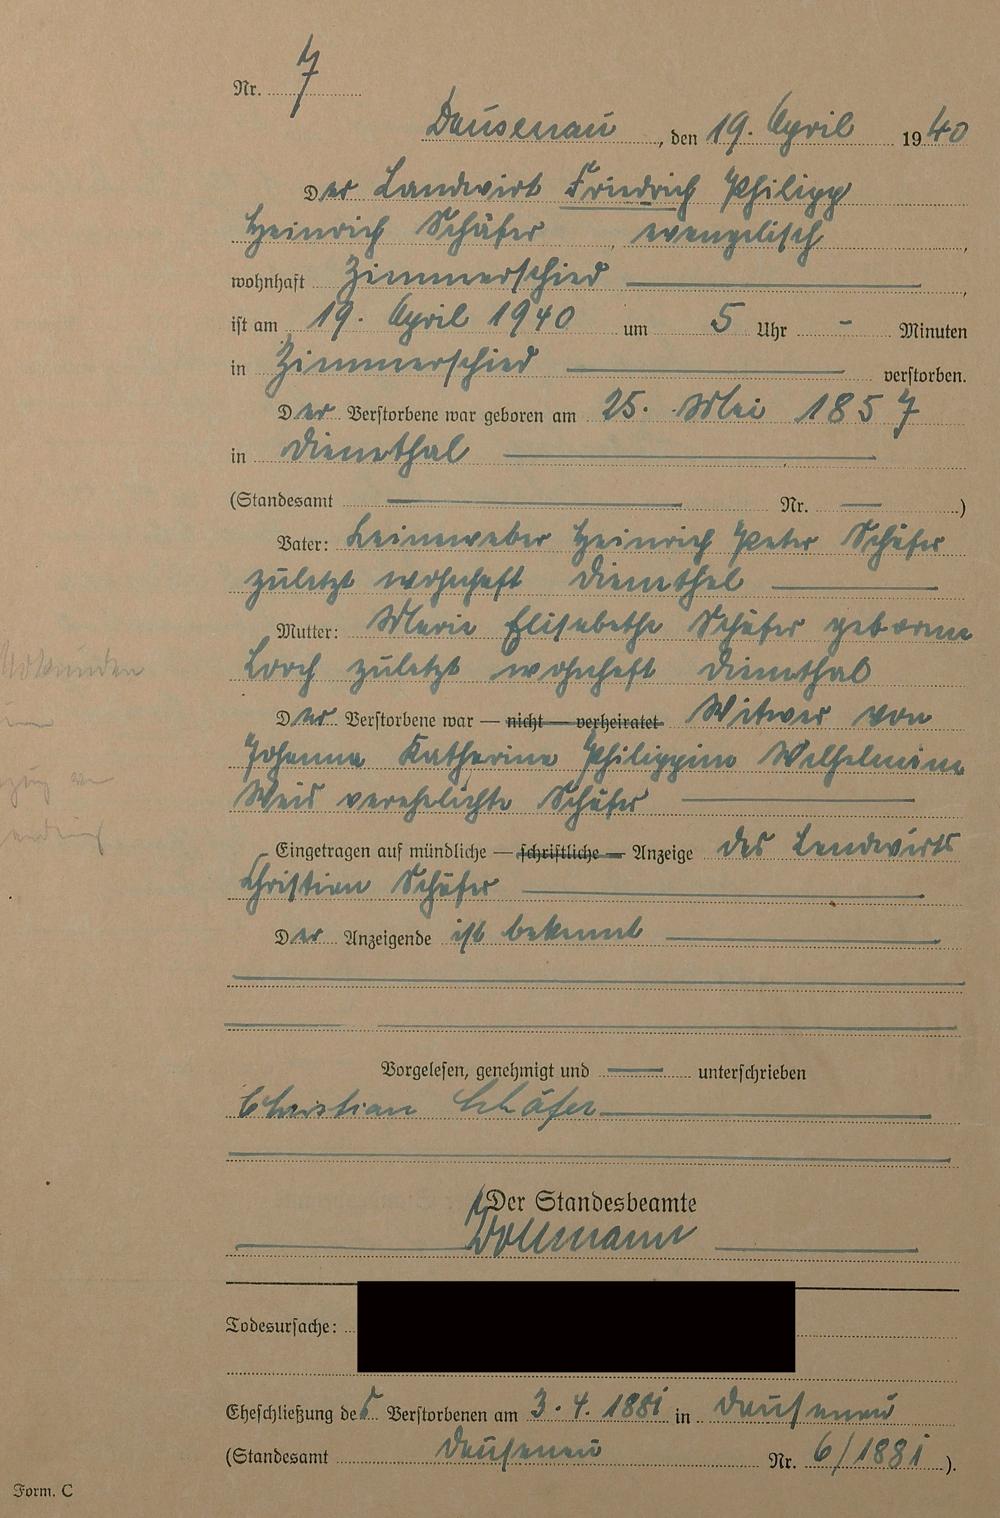 Nr. 7
Dausenau, den 19. April 1940
Der Landwirt Friedrich Philipp
Heinrich Schäfer, evangelisch,
wohnhaft Zimmerschied,
ist am 19. April 1940 um 5 Uhr - Minuten
in Zimmerschied verstorben.
Der Verstorbene war geboren am 25. Mai 1857
in Dienethal
(Standesamt Nr. — )
Vater: Leineweber Heinrich Peter Schäfer
zuletzt wohnhaft Dienethal
Mutter: Marie Elisabethe Schäfer geborene
Lorch zuletzt wohnhaft Dienethal
Der Verstorbene war — nicht — verheiratet Witwer von
Johanna Katharina Philippine Wilhelmine
Weis verehelichte Schäfer
Eingetragen auf mündliche — schriftliche — Anzeige des Landwirts
Christian Schäfer
Der Anzeigende ist bekannt
Vorgelesen, genehmigt und — unterschrieben
Christian Schäfer
Der Standesbeamte
Todesursache:
Eheschließung des Verstorbenen am 3.4.1881 in Dausenau
(Standesamt Dausenau Nr. 6/1881).
Form. C
Urkunden